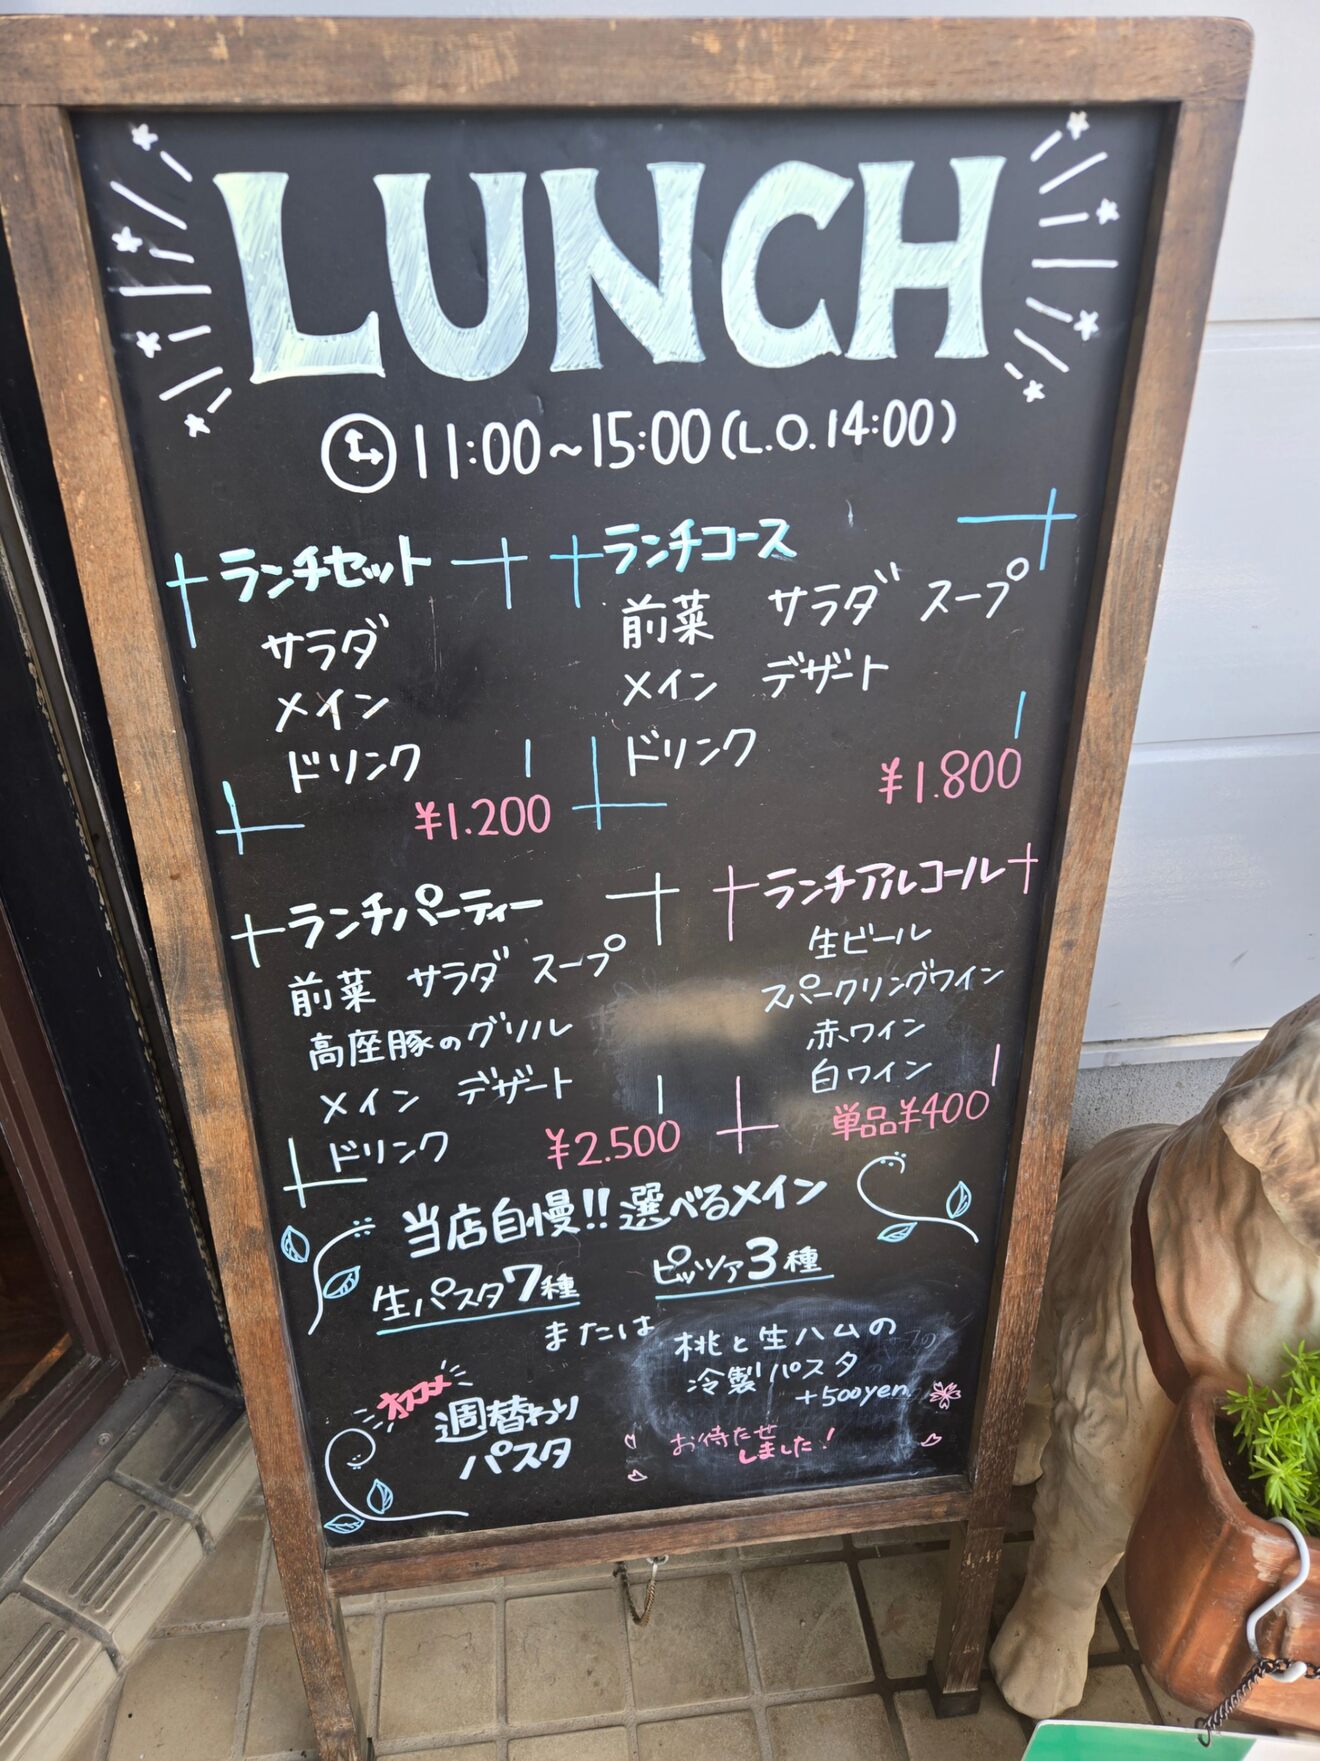 LUNCH
11:00~15:00(L.O.14:00)
ランチセット
サラダ
メイン
ドリンク
¥1.200
ランチコース
前菜 サラダ スープ
メイン デザート
ドリンク
¥1.800
ランチパーティー
前菜 サラダ スープ
高座豚のグリル
メイン デザート
ドリンク
¥2.500
ランチアルコール
生ビール
スパークリングワイン
赤ワイン
白ワイン
単品¥400
当店自慢!!選べるメイン
生パスタ7種
ピッツァ3種
または
オススメ
週替わり
パスタ
桃と生ハムの
冷製パスタ
+500yen
お待たせ
しました!